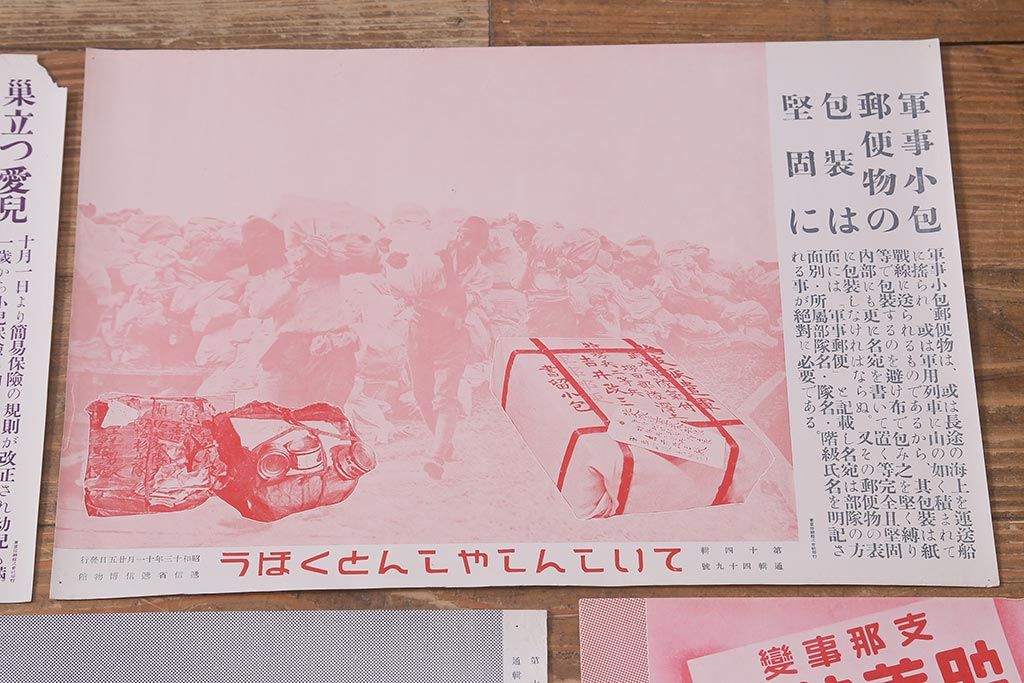 軍事小包
郵便物の
包装は
堅固に
軍事小包郵便物は、或は長途の海上を運送船
に搖られ、或は軍用列車に山の如く積まれて
戰線に送られるものであるから、其包装は紙
等で包装するのを避け布で包み之を堅く縛り
内部にも更に名宛を書いて置く等完全且堅固
に包装しなければならぬ。又その郵便物の表
面には「軍事郵便」と記載し名宛は部隊の方
面別・所屬部隊名・隊名・階級氏名を明記さ
れる事が絕對に必要である。
書留小包
第十四輯
通輯四十九號
ていしんしやしんとくほう
昭和十三年十一月廿五日發行
遞信省遞信博物館
巢立つ愛兒
十月一日より簡易保險の規則が改正され幼兒の滿
支那事變